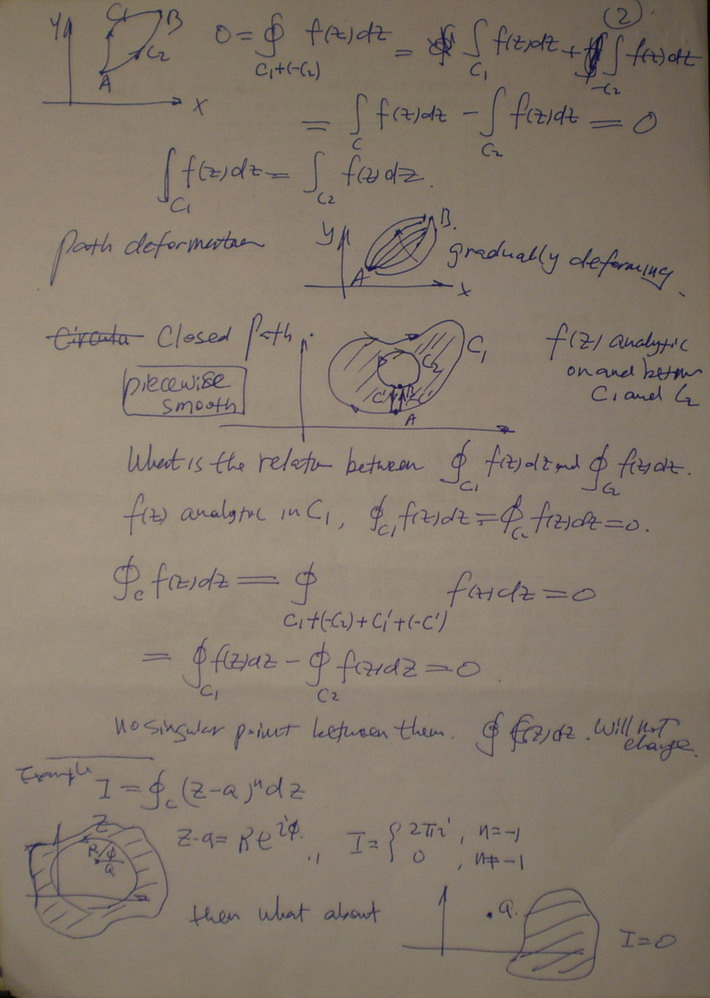 (2)
Y C₁ B
C₂
A
X
0 = ∮_{C₁+(-C₂)} f(z)dz = ∫_{C₁} f(z)dz + ∫_{-C₂} f(z)dz
= ∫_C f(z)dz - ∫_{C₂} f(z)dz = 0
∫_{C₁} f(z)dz = ∫_{C₂} f(z)dz.
path deformation
y B.
A x
gradually deforming.
Closed Path.
C₁
C₂
A
f(z) analytic
on and between
C₁ and C₂
piecewise
smooth
What is the relation between ∮_{C₁} f(z)dz and ∮_{C₂} f(z)dz.
f(z) analytic in C₁, ∮_{C₁} f(z)dz = ∮_{C₂} f(z)dz = 0.
∮_C f(z)dz = ∮_{C₁+(-C₂)+C'+(-C')} f(z)dz = 0
= ∮_{C₁} f(z)dz - ∮_{C₂} f(z)dz = 0
no singular point between them. ∮ f(z)dz. Will not
change.
Example I = ∮_C (z-a)ⁿdz
z
R φ
a
z-a = Re^{iφ}., I = { 2πi, n=-1
0, n≠-1
then what about
a.
I=0